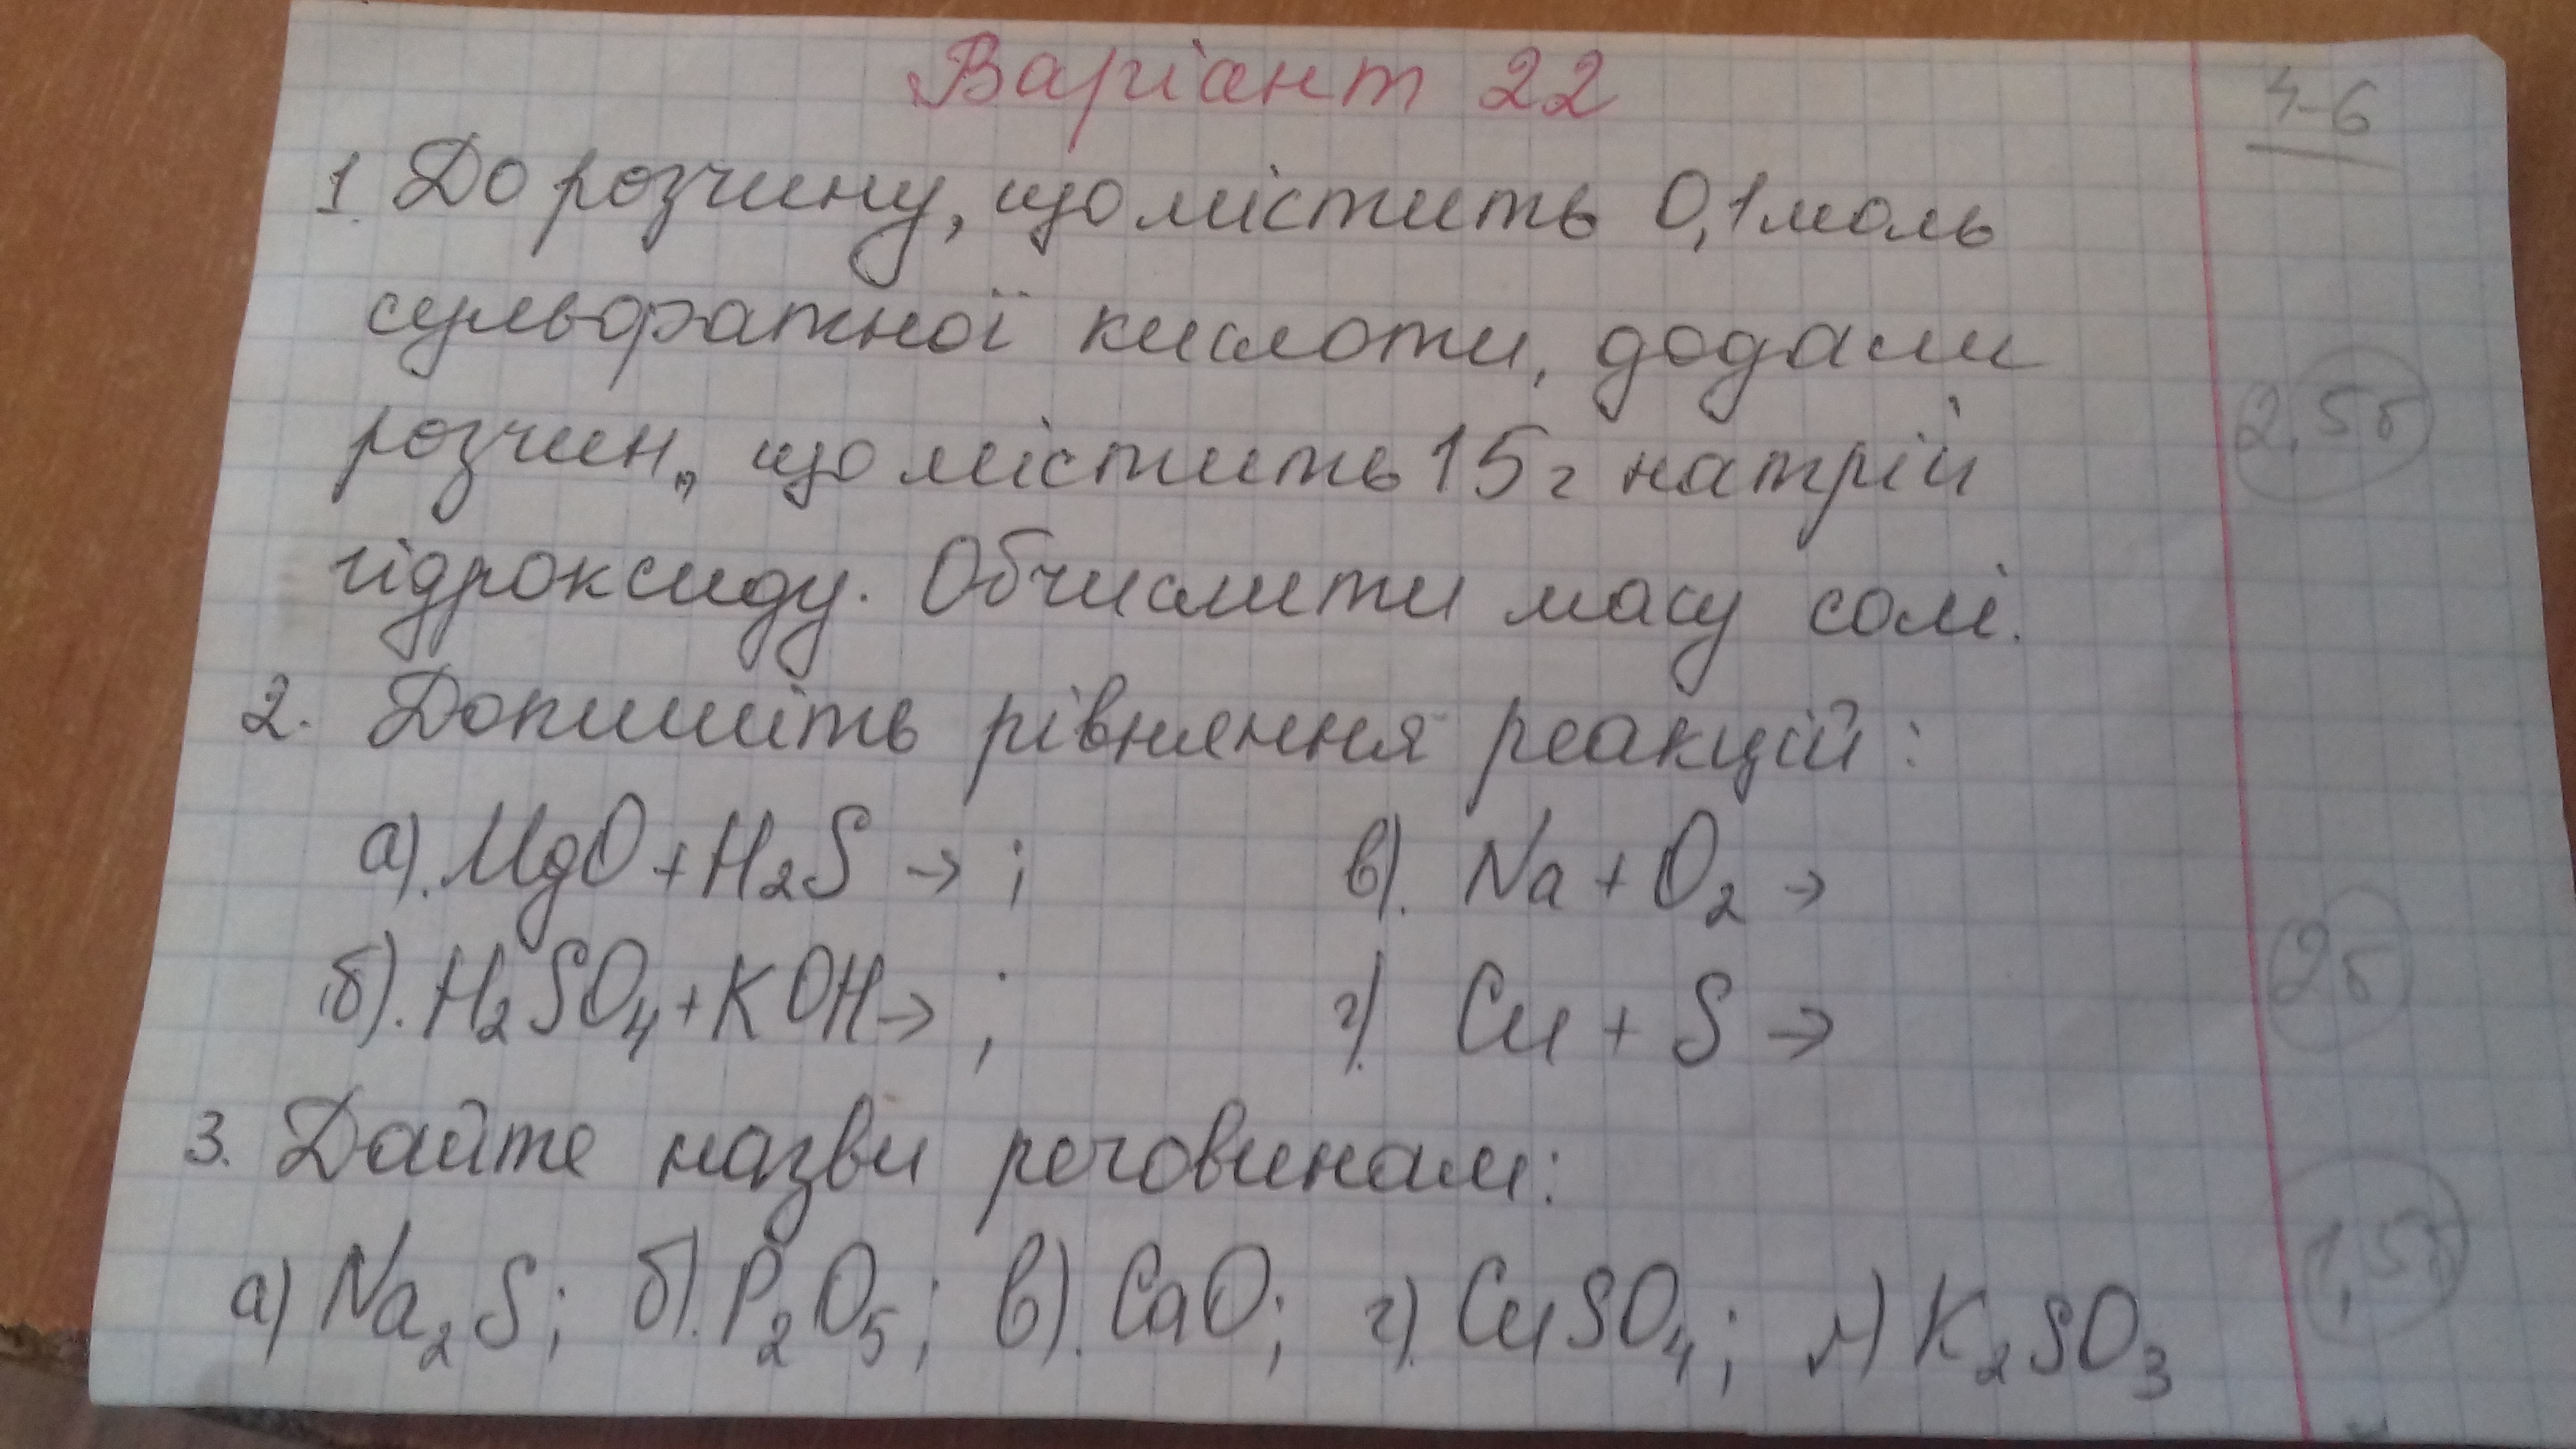 Варіант 22
4-6
1. До розчину, що містить 0,1 моль
сульфатної кислоти, додали
2,5б
розчин, що містить 15 г натрій
гідроксиду. Обчислити масу солі.
2. Допишіть рівняння реакцій:
а). MgO + H₂S → ; в). Na + O₂ →
2б
б). H₂SO₄ + KOH → ; г). Cu + S →
3. Дайте назви речовинам:
1,5б
а) Na₂S; б). P₂O₅; в). CaO; г). CuSO₄; д) K₂SO₃